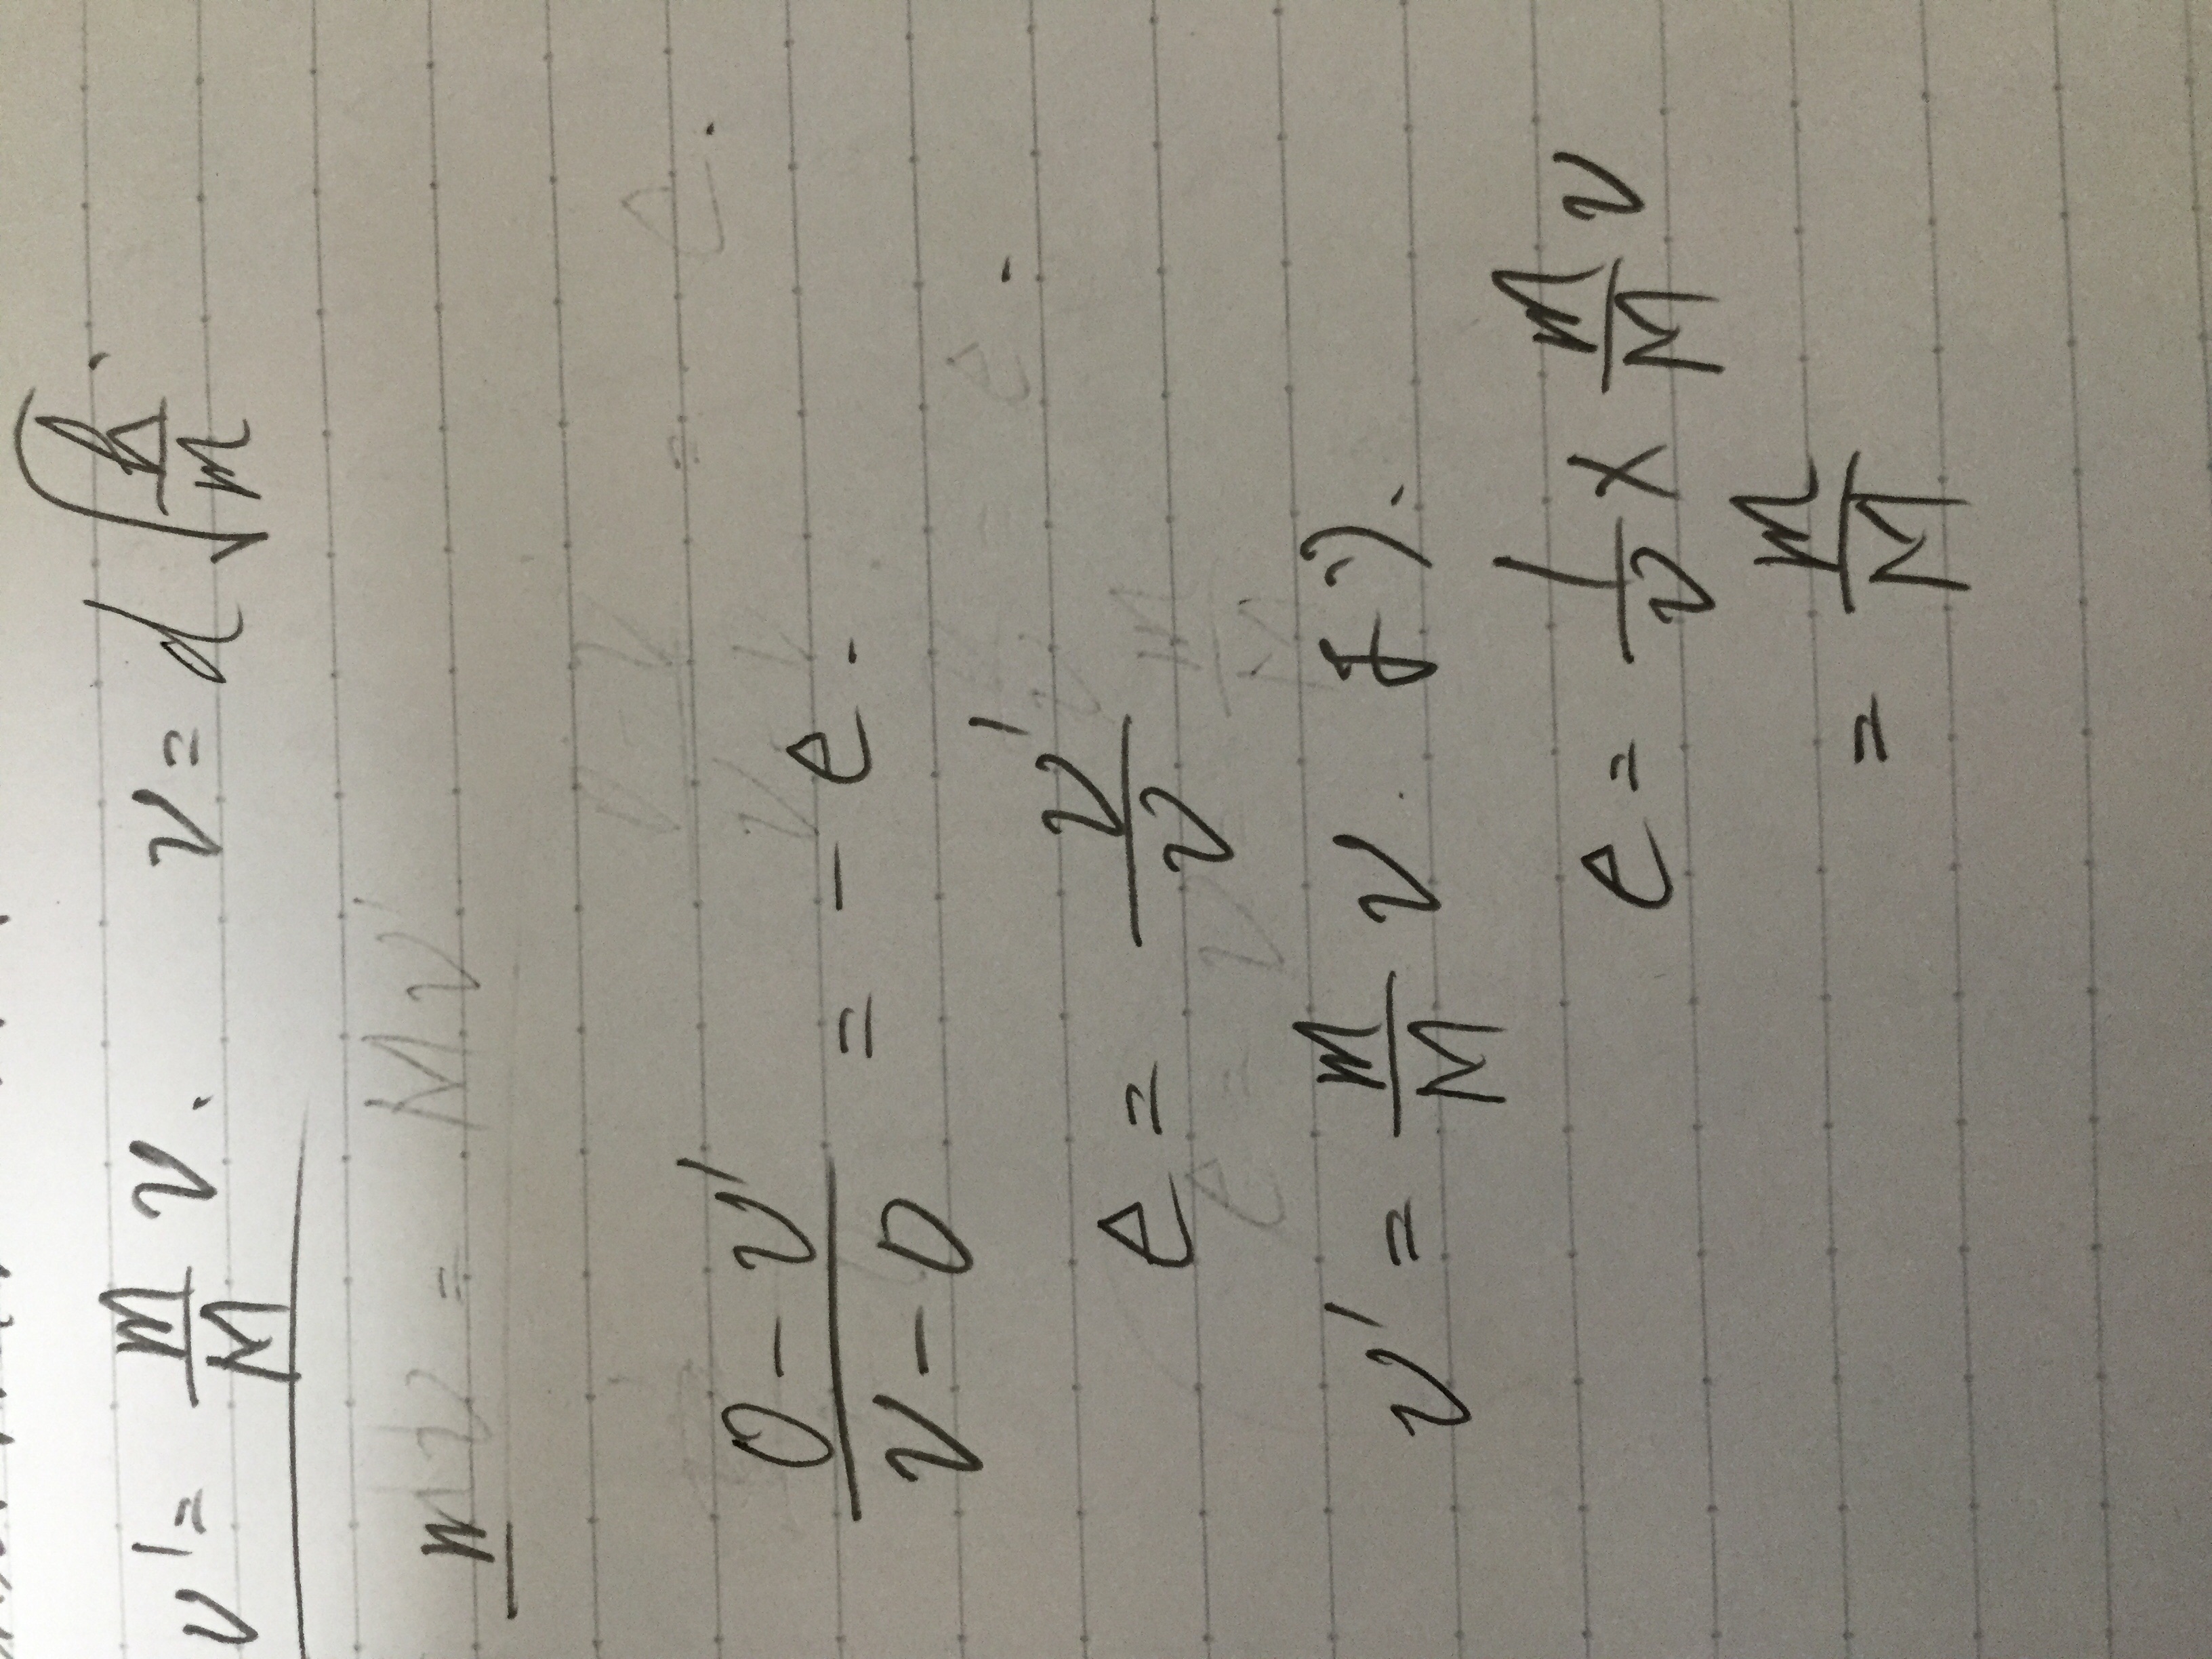 v' = m/M v. v = d √(k/m).
m
(0 - v')/(v - 0) = - e.
e = v'/v
v' = m/M v より.
e = 1/v × m/M v
= m/M